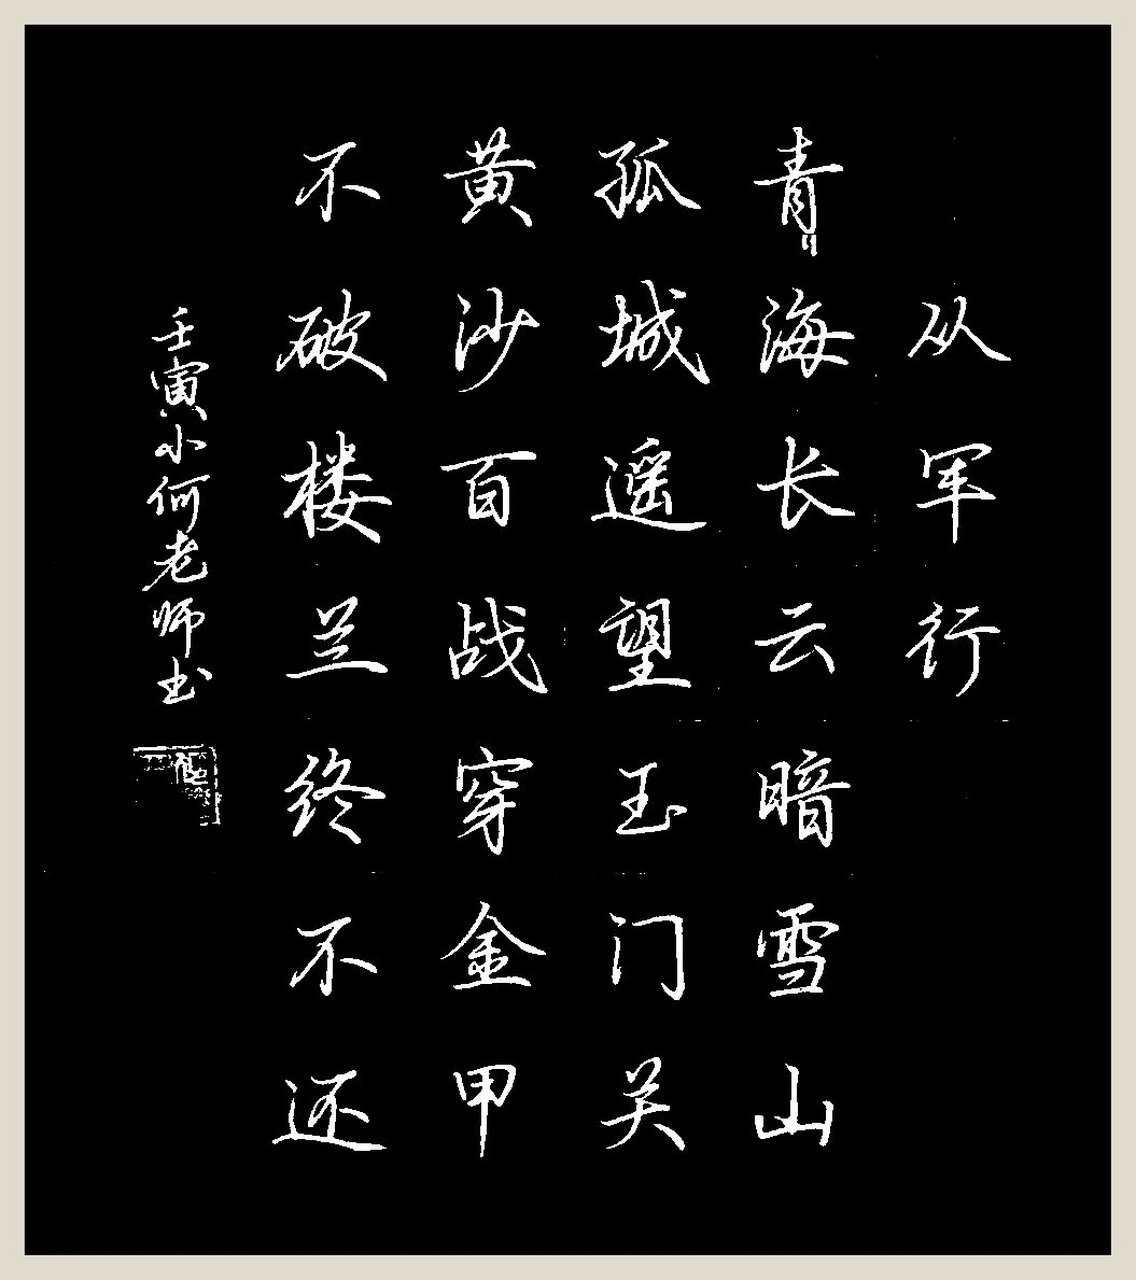 从军行
青海长云暗雪山
孤城遥望玉门关
黄沙百战穿金甲
不破楼兰终不还
壬寅小何老师书